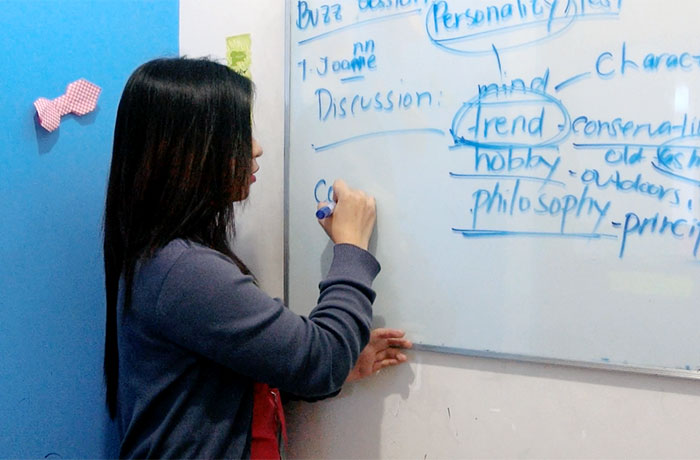 Buzz Session
Personality Test
T. Joanne
nn
Discussion:
mind
Charact
trend - conservati
hobby old fash
- outdoors,
philosophy - princip
Co